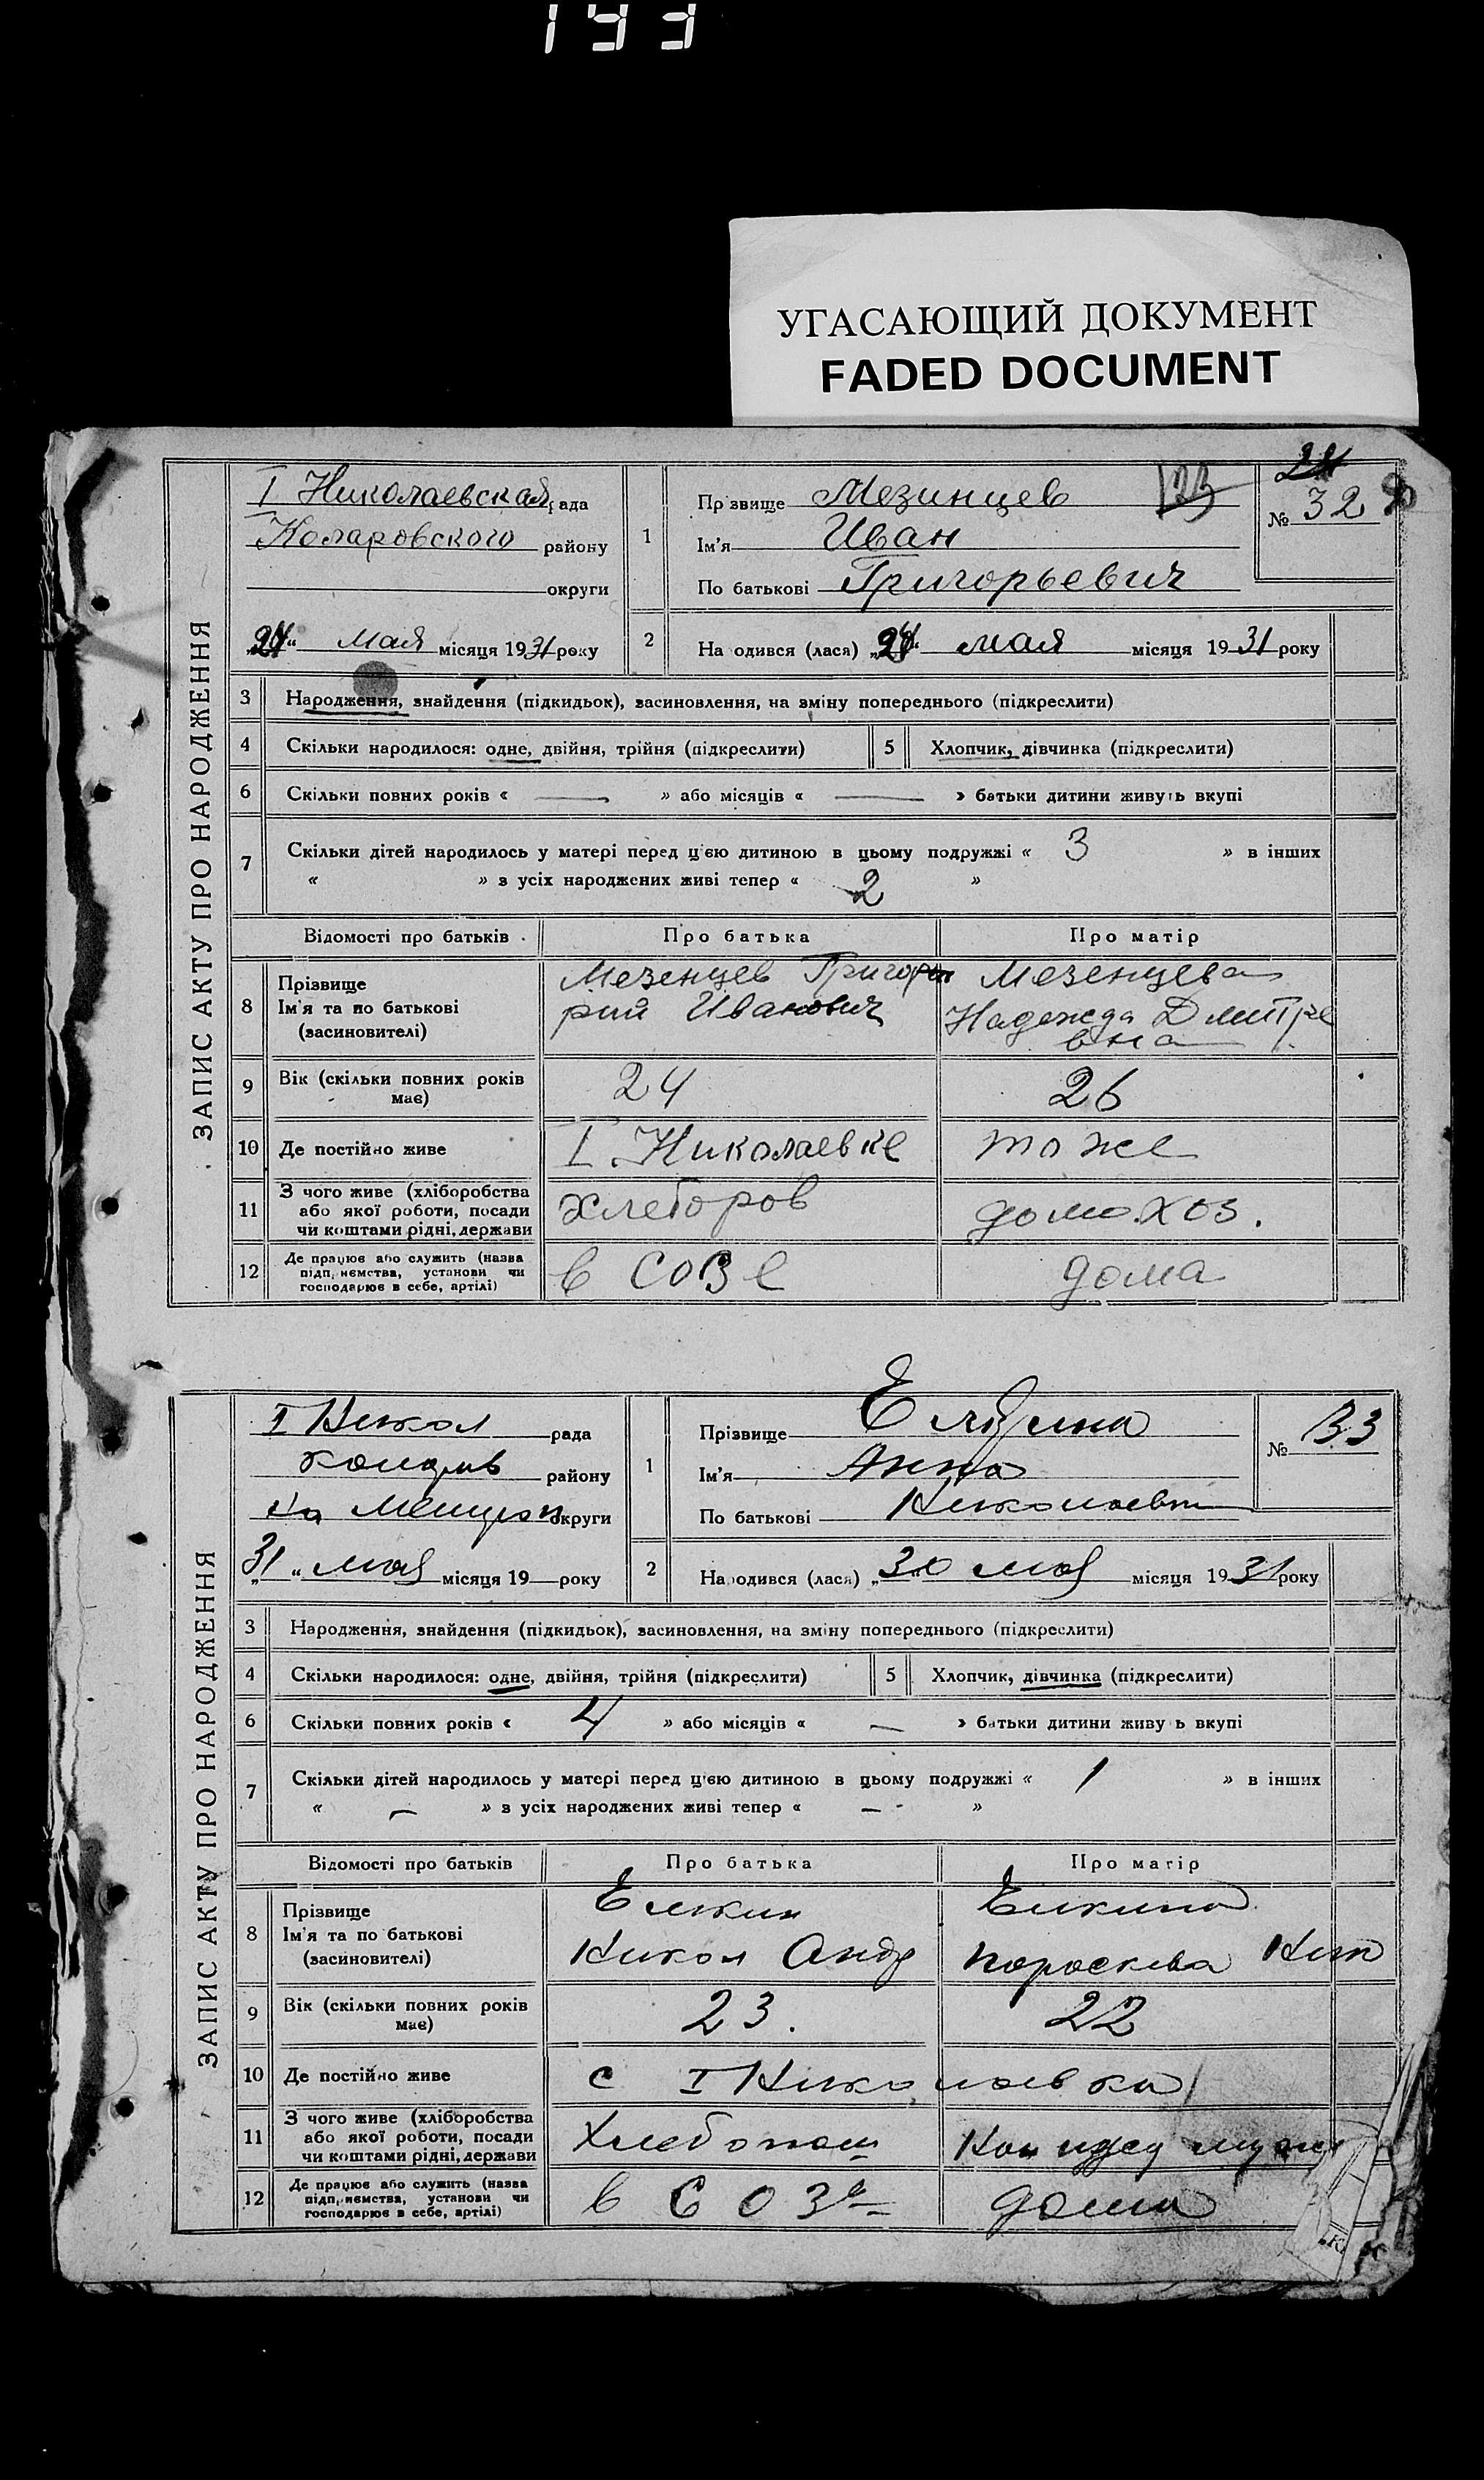 193
УГАСАЮЩИЙ ДОКУМЕНТ
FADED DOCUMENT
ЗАПИС АКТУ ПРО НАРОДЖЕННЯ
I Николаевская рада
Коларовского району
округи
мая місяця 1931 року
1
Прзвище Мезинцев
Ім'я Иван
По батькові Григорьевич
№ 32
2
На одився (лася) мая місяця 1931 року
3 Народження, знайдення (підкидьок), засиновлення, на зміну попереднього (підкреслити)
4 Скільки народилося: одне, двійня, трійня (підкреслити) 5 Хлопчик, дівчинка (підкреслити)
6 Скільки повних років « — » або місяців « — » батьки дитини живуть вкупі
7 Скільки дітей народилось у матері перед цією дитиною в цьому подружжі « 3 » в інших
« » з усіх народжених живі тепер « 2 »
Відомості про батьків Про батька Про матір
8 Прізвище
Ім'я та по батькові
(засиновителі)
Мезенцев Григо
рий Иванович
Мезенцева
Надежда Дмитре
вна
9 Вік (скільки повних років
має)
24 26
10 Де постійно живе I Николаевке тоже
11 З чого живе (хліборобства
або якої роботи, посади
чи коштами рідні, держави
хлеборов домо.хоз.
12 Де працює або служить (назва
підп. иємства, установи чи
господарює в себе, артілі)
в СОЗе дома
ЗАПИС АКТУ ПРО НАРОДЖЕННЯ
I Никол рада
району
округи
31 " мая місяця 19 — року
1
Прізвище
Ім'я Анна
По батькові
№ 33
2
Народився (лася) „30 мая місяця 1931 року
3 Народження, знайдення (підкидьок), засиновлення, на зміну попереднього (підкреслити)
4 Скільки народилося: одне, двійня, трійня (підкреслити) 5 Хлопчик, дівчинка (підкреслити)
6 Скільки повних років « 4 » або місяців « — » батьки дитини живу ь вкупі
7 Скільки дітей народилось у матері перед цією дитиною в цьому подружжі « 1 » в інших
« — » з усіх народжених живі тепер « — »
Відомості про батьків Про батька Про матір
8 Прізвище
Ім'я та по батькові
(засиновителі)
Елкин
Никол Андр
Елкина
Пороскева Ник
9 Вік (скільки повних років
має)
23. 22
10 Де постійно живе с I Николаевка
11 З чого живе (хліборобства
або якої роботи, посади
чи коштами рідні, держави
Хлебопаш
12 Де працює або служить (назва
підп. иємства, установи чи
господарює в себе, артілі)
в СОЗе дома